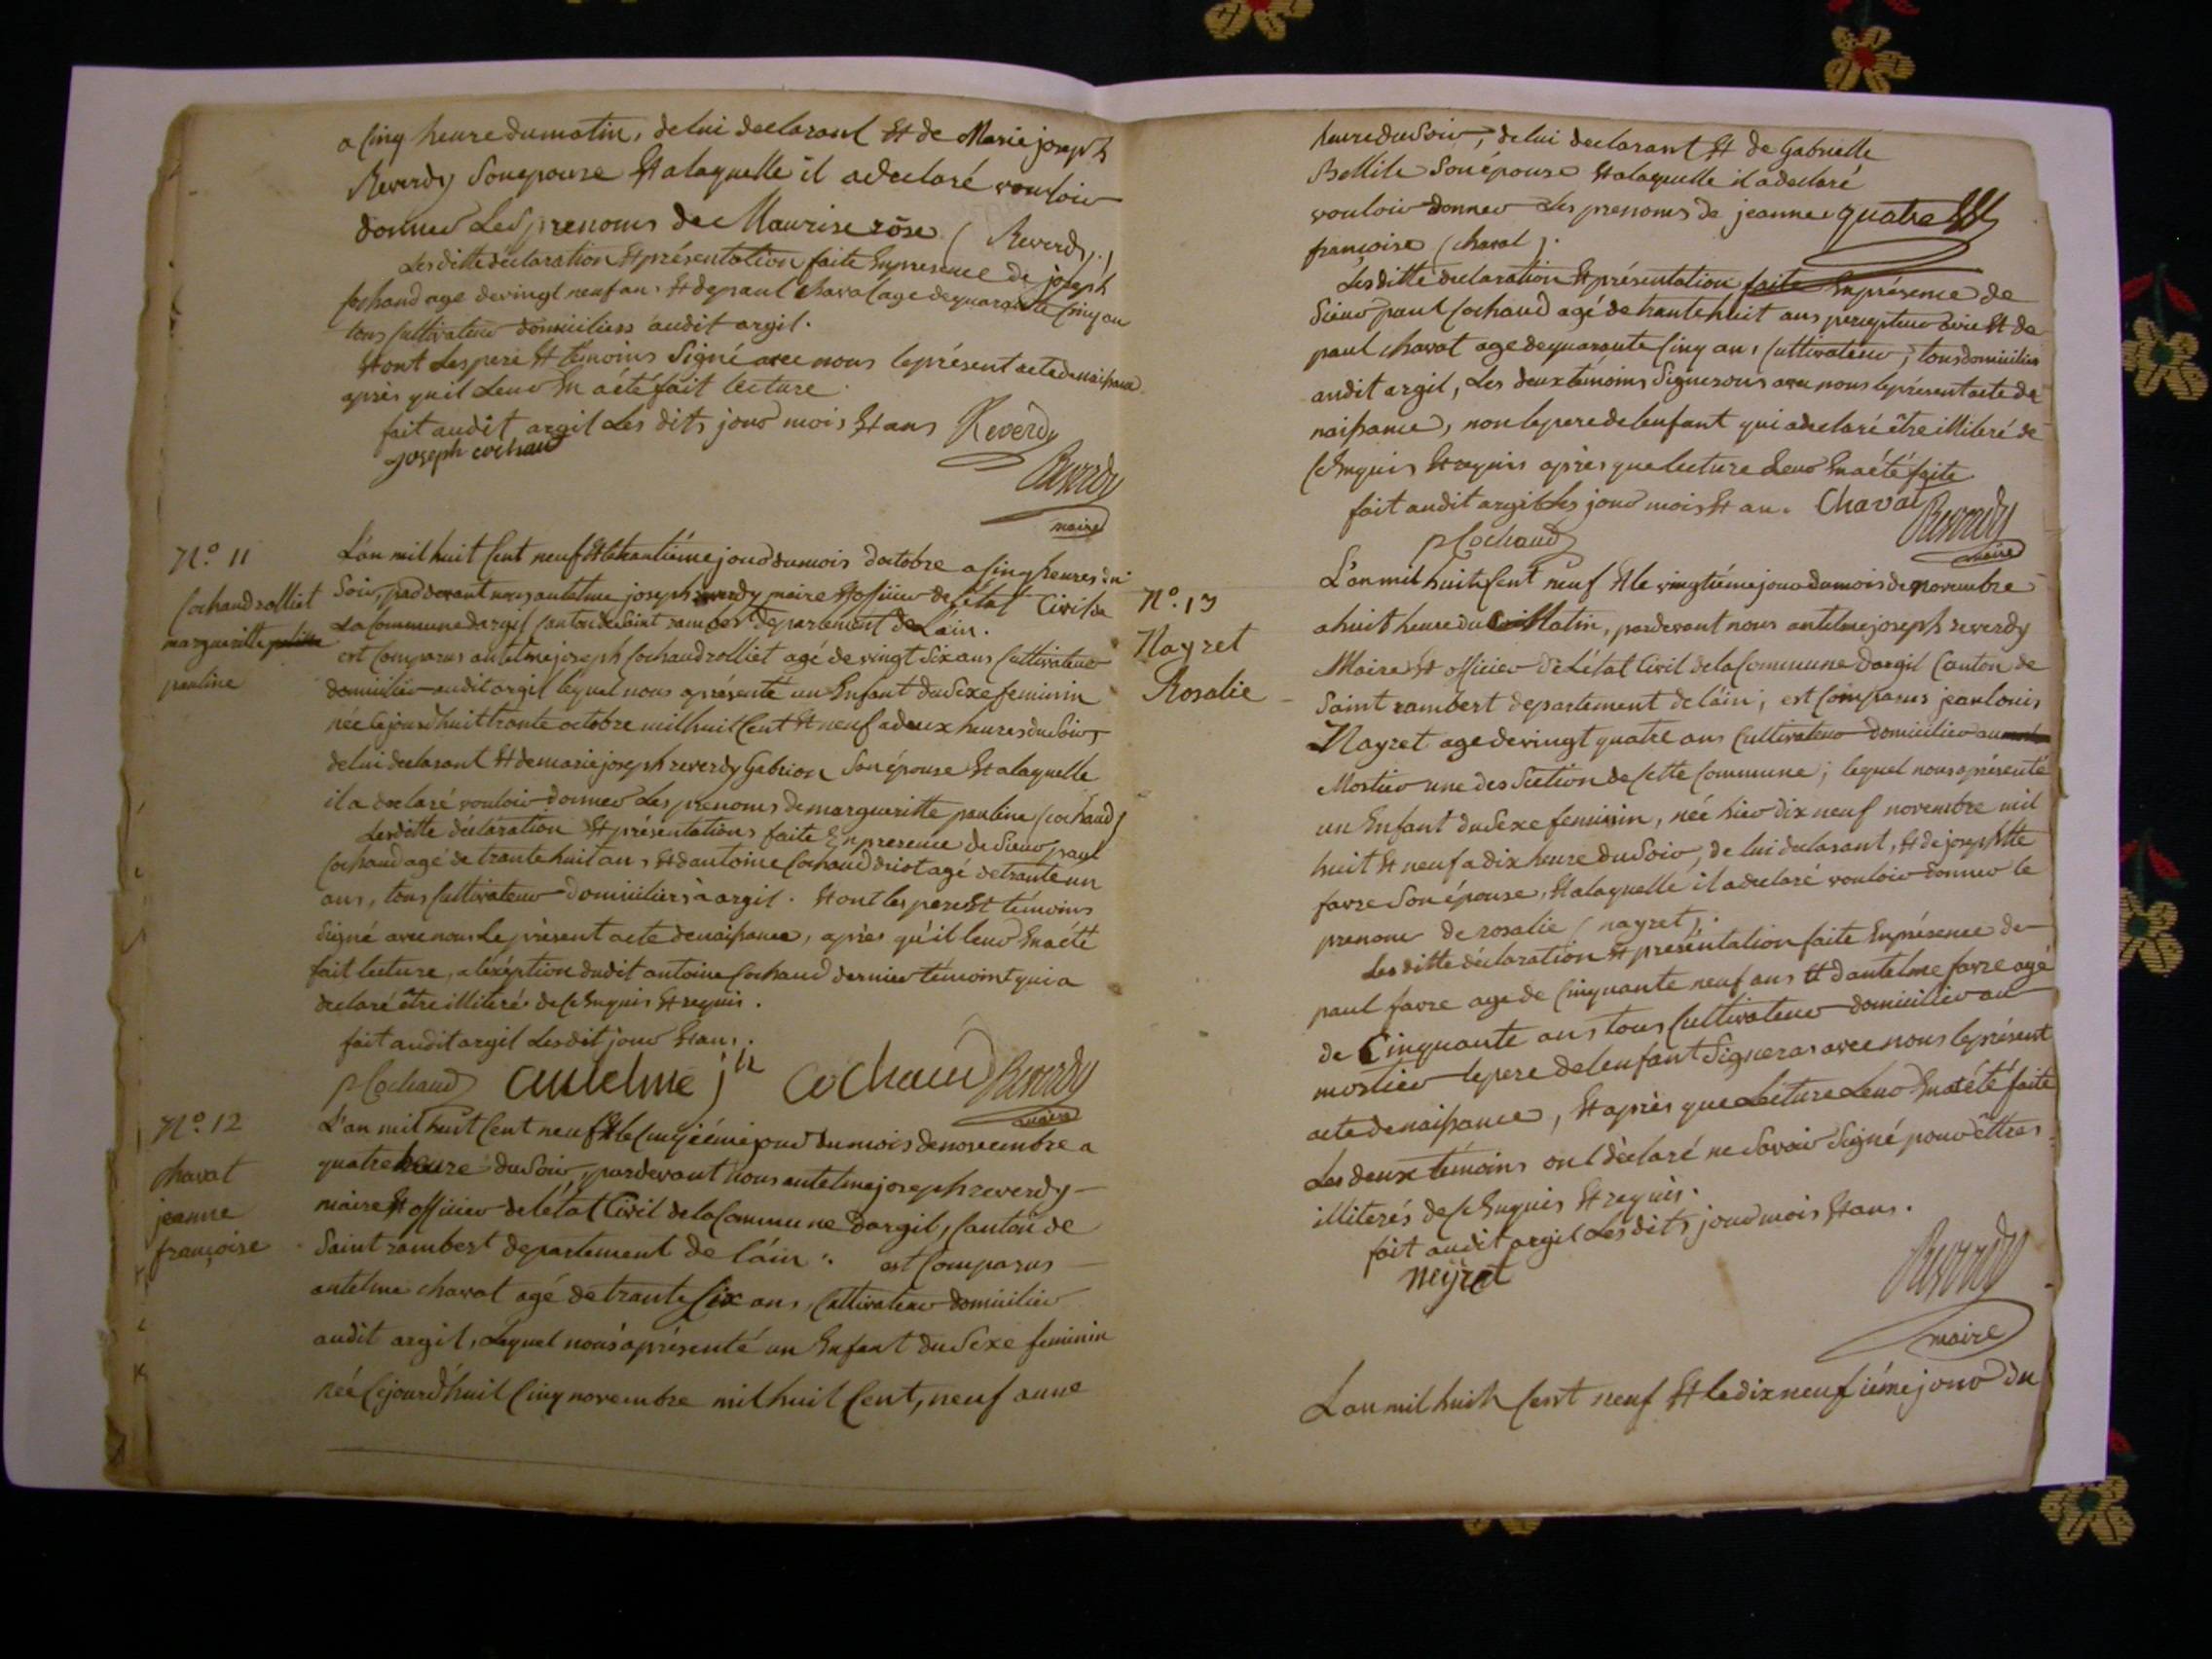 a cinq heure du matin, de lui declarant Et de Marie joseph
Reverdy Son epouse Et a laquelle il a declaré vouloir
donner Les prenoms de Maurise rose ( Reverdy. )
Lesditte déclaration Et présentation faite En presence de joseph
Cochand age de vingt neuf ans Et de paul Chavat age de quarante Cinq an
tous Cultivateur domiciliers audit argil.
Et ont Les pere Et témoins Signé avec nous le présent acte de naissance
après qu'il Leur En a été fait lecture.
fait audit argil Les dits jour mois Et ans Reverdy
Joseph cochand
Reverdy
maire
N.o 11
Cochand rolliet
margueritte
pauline
L'an mil huit Cent neuf Et le trantième jour du mois d'octobre a Cinq heures du
Soir, par devant nous antelme joseph reverdy maire Et officier de l'état Civil de
La Commune d'argil Canton de Saint rambert departement de L'ain.
est Comparus antelme joseph Cochand rolliet agé de vingt Six ans Cultivateur
domicilier audit argil lequel nous a présenté un Enfant du Sexe feminin
née Cejourd'huit trante octobre mil huit Cent Et neuf a deux heures du Soir,
de lui declarant Et de marie joseph reverdy Gabrion Son épouse Et a laquelle
il a declaré vouloir donner Les prenoms de margueritte pauline ( Cochand )
Lesditte déclaration Et présentations faite En presence de Sieur paul
Cochand agé de trante huit ans Et d'antoine Cochand driot agé de trante un
ans, tous Cultivateur domiciliers à argil. Et ont les pere Et témoins
Signé avec nous Le présent acte de naissance, après qu'il leur En a été
fait lecture, a l'exéption dudit antoine Cochand dernier témoint qui a
declaré être illiteré de Ce Enquis Et requis.
fait audit argil Lesdit jour Et ans.
p Cochand antelme jh Cochaud Reverdy
maire
N.o 12
Chavat
jeanne
françoise
L'an mil huit Cent neuf Et le Cinqième jour du mois de novembre a
quatre heure du Soir, par devant nous antelme joseph reverdy
maire Et officier de l'état Civil de la Commune d'argil, Canton de
Saint rambert departement de l'ain. est Comparus
antelme chavat agé de trante Six ans, Cultivateur domicilier
audit argil, Lequel nous a présenté un Enfant du Sexe feminin
née Cejourd'huit Cinq novembre mil huit Cent, neuf a une
heure du Soir, de lui declarant Et de Gabrielle
Son épouse Et a laquelle il a declaré
vouloir donner Les prenoms de jeanne quatre
françoise ( chavat ).
Lesditte declaration Et présentation faite En présence de
Sieur paul Cochand agé de trante huit ans Et de
paul chavat age de quarante Cinq ans Cultivateur, tous domicilier
audit argil, Les deux témoins Signerons avec nous le présent acte de
naissance, non le pere de l'enfant qui a declaré être illiteré de
Ce Enquis Et requis après que lecture Leur En a été faite
fait audit argil Les jour mois Et an. Chavat Reverdy
p Cochand maire
N.o 13
Nayret
Rosalie
L'an mil huit Cent neuf Et le vingtième jour du mois de novembre
a huit heure du Matin, par devant nous antelme joseph reverdy
Maire Et officier de L'état Civil de la Commune d'argil Canton de
Saint rambert departement de l'ain; est Comparus jean louis
Nayret age de vingt quatre ans Cultivateur domicilier au
Mortier une des Section de Cette Commune; lequel nous a présenté
un Enfant du Sexe feminin, née hier dix neuf novembre mil
huit Et neuf a dix heure du Soir, de lui declarant, Et de josephtte
favre Son épouse, Et a laquelle il a declaré vouloir donner le
prenom de rosalie ( nayret ).
Lesditte déclaration Et présentation faite En présence de
paul favre age de Cinquante neuf ans Et d'antelme favre agé
de Cinquante ans tous Cultivateur domicilier au
mortier le pere de l'enfant Signeras avec nous le présent
acte de naissance, Et après que Lecture Leur En a été faite
Les deux témoins ont déclaré ne Savoir Signé pour êttres
illiterés de Ce Enquis Et requis.
fait audit argil Les dits jour mois Et ans.
neyret Reverdy
maire
L'an mil huit Cent neuf Et le dix neuf ième jour du